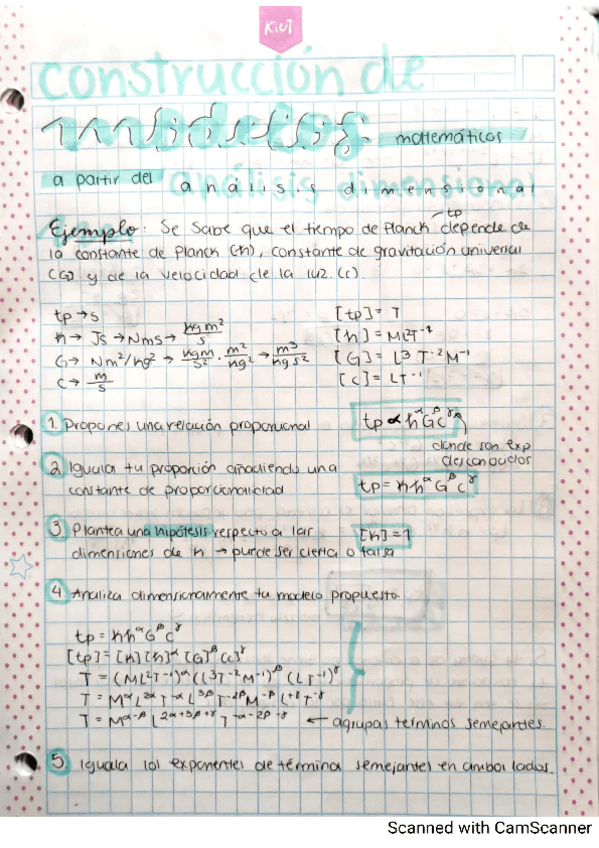 KiUT
construcción de
modelos matemáticos
a partir del análisis dimensional
Ejemplo: Se sabe que el tiempo de Planck tp depende de
la constante de Planck (ħ), constante de gravitación universal
(G) y de la velocidad de la luz. (c)
tp → s
ħ → Js → Nms → kgm²/s
G → Nm²/kg² → kgm/s² · m²/kg² → m³/kgs²
C → m/s
[tp] = T
[ħ] = ML²T⁻¹
[G] = L³ T⁻² M⁻¹
[c] = LT⁻¹
1. Propones una relación proporcional
tp ∝ ħ^α G^β c^γ
donde son exp
desconocidos
2 Iguala tu proporción añadiendo una
constante de proporcionalidad
tp = kħ^α G^β c^γ
3. Plantea una hipótesis respecto a las
dimensiones de k → puede ser cierta o falsa
[k] = 1
4. Analiza dimensionalmente tu modelo propuesto.
tp = kħ^α G^β c^γ
[tp] = [k] [ħ]^α [G]^β [c]^γ
T = (ML²T⁻¹)^α (L³T⁻²M⁻¹)^β (LT⁻¹)^γ
T = M^α L^2α T^-α L^3β T^-2β M^-β L^+γ T^-γ
T = M^α-β L^2α+3β+γ T^-α-2β-γ ← agrupas terminos semejantes.
5. Iguala los exponentes de término semejantes en ambos lados.
Scanned with CamScanner